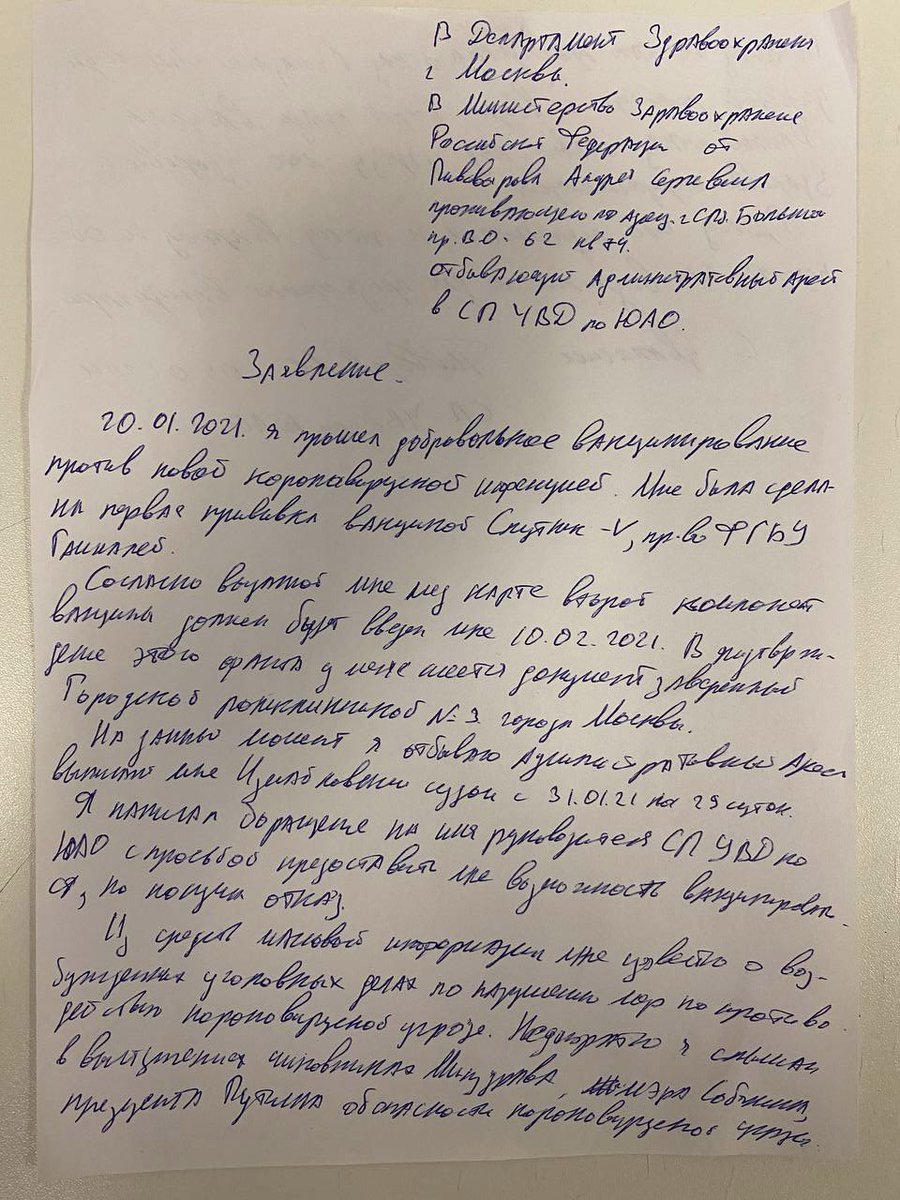 В Департамент Здравоохранени
г Москвы.
В Министерство Здравоохранение
Российской Федерации от
Пивоварова Андрея Сергеевича
проживающего по адресу. г СПб. Большой
пр. В.О. 62 кв 74.
отбывающего Административный Арест
в СП УВД по ЮАО.
Заявление.
20.01.2021. я прошел добровольное вакцинирование
против новой короновирусной инфекцией. Мне была сдела-
на первая прививка вакциной Спутник-V, пр-во ФГБУ
Гамалеи.
Согласно выданной мне мед карте второй компонент
вакцины должен будет введен мне 10.02.2021. В подтверж-
дение этого факта у меня имеется документ заверенный
Городской поликлиникой № 3 города Москвы.
На данный момент я отбываю Административный Арест
мне судом с 31.01.21 на 29 суток.
Я написал обращение на имя руководителя СП УВД по
ЮАО с просьбой предоставить мне возможность вакцинироват-
ся, но получил отказ.
Из средств массовой информации мне известно о воз-
бужденных уголовных делах по нарушению мер по противо-
действию короновирусной угрозе. Неоднократно я слышал
в выступлениях чиновников Минздрава, мэра Собянина,
президента Путина об опасности короновирусной угрозы.